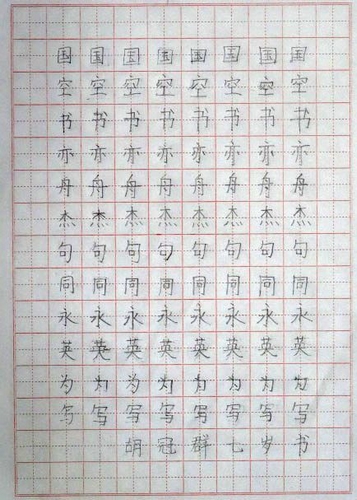 国国国国国国国国
空空空空空空空空
书书书书书书书书
亦亦亦亦亦亦亦亦
舟舟舟舟舟舟舟舟
杰杰杰杰杰杰杰杰
句句句句句句句句
同同同同同同同同
永永永永永永永永
英英英英英英英英
为为为为为为为为
写写写写写写写写
胡冠群七岁书